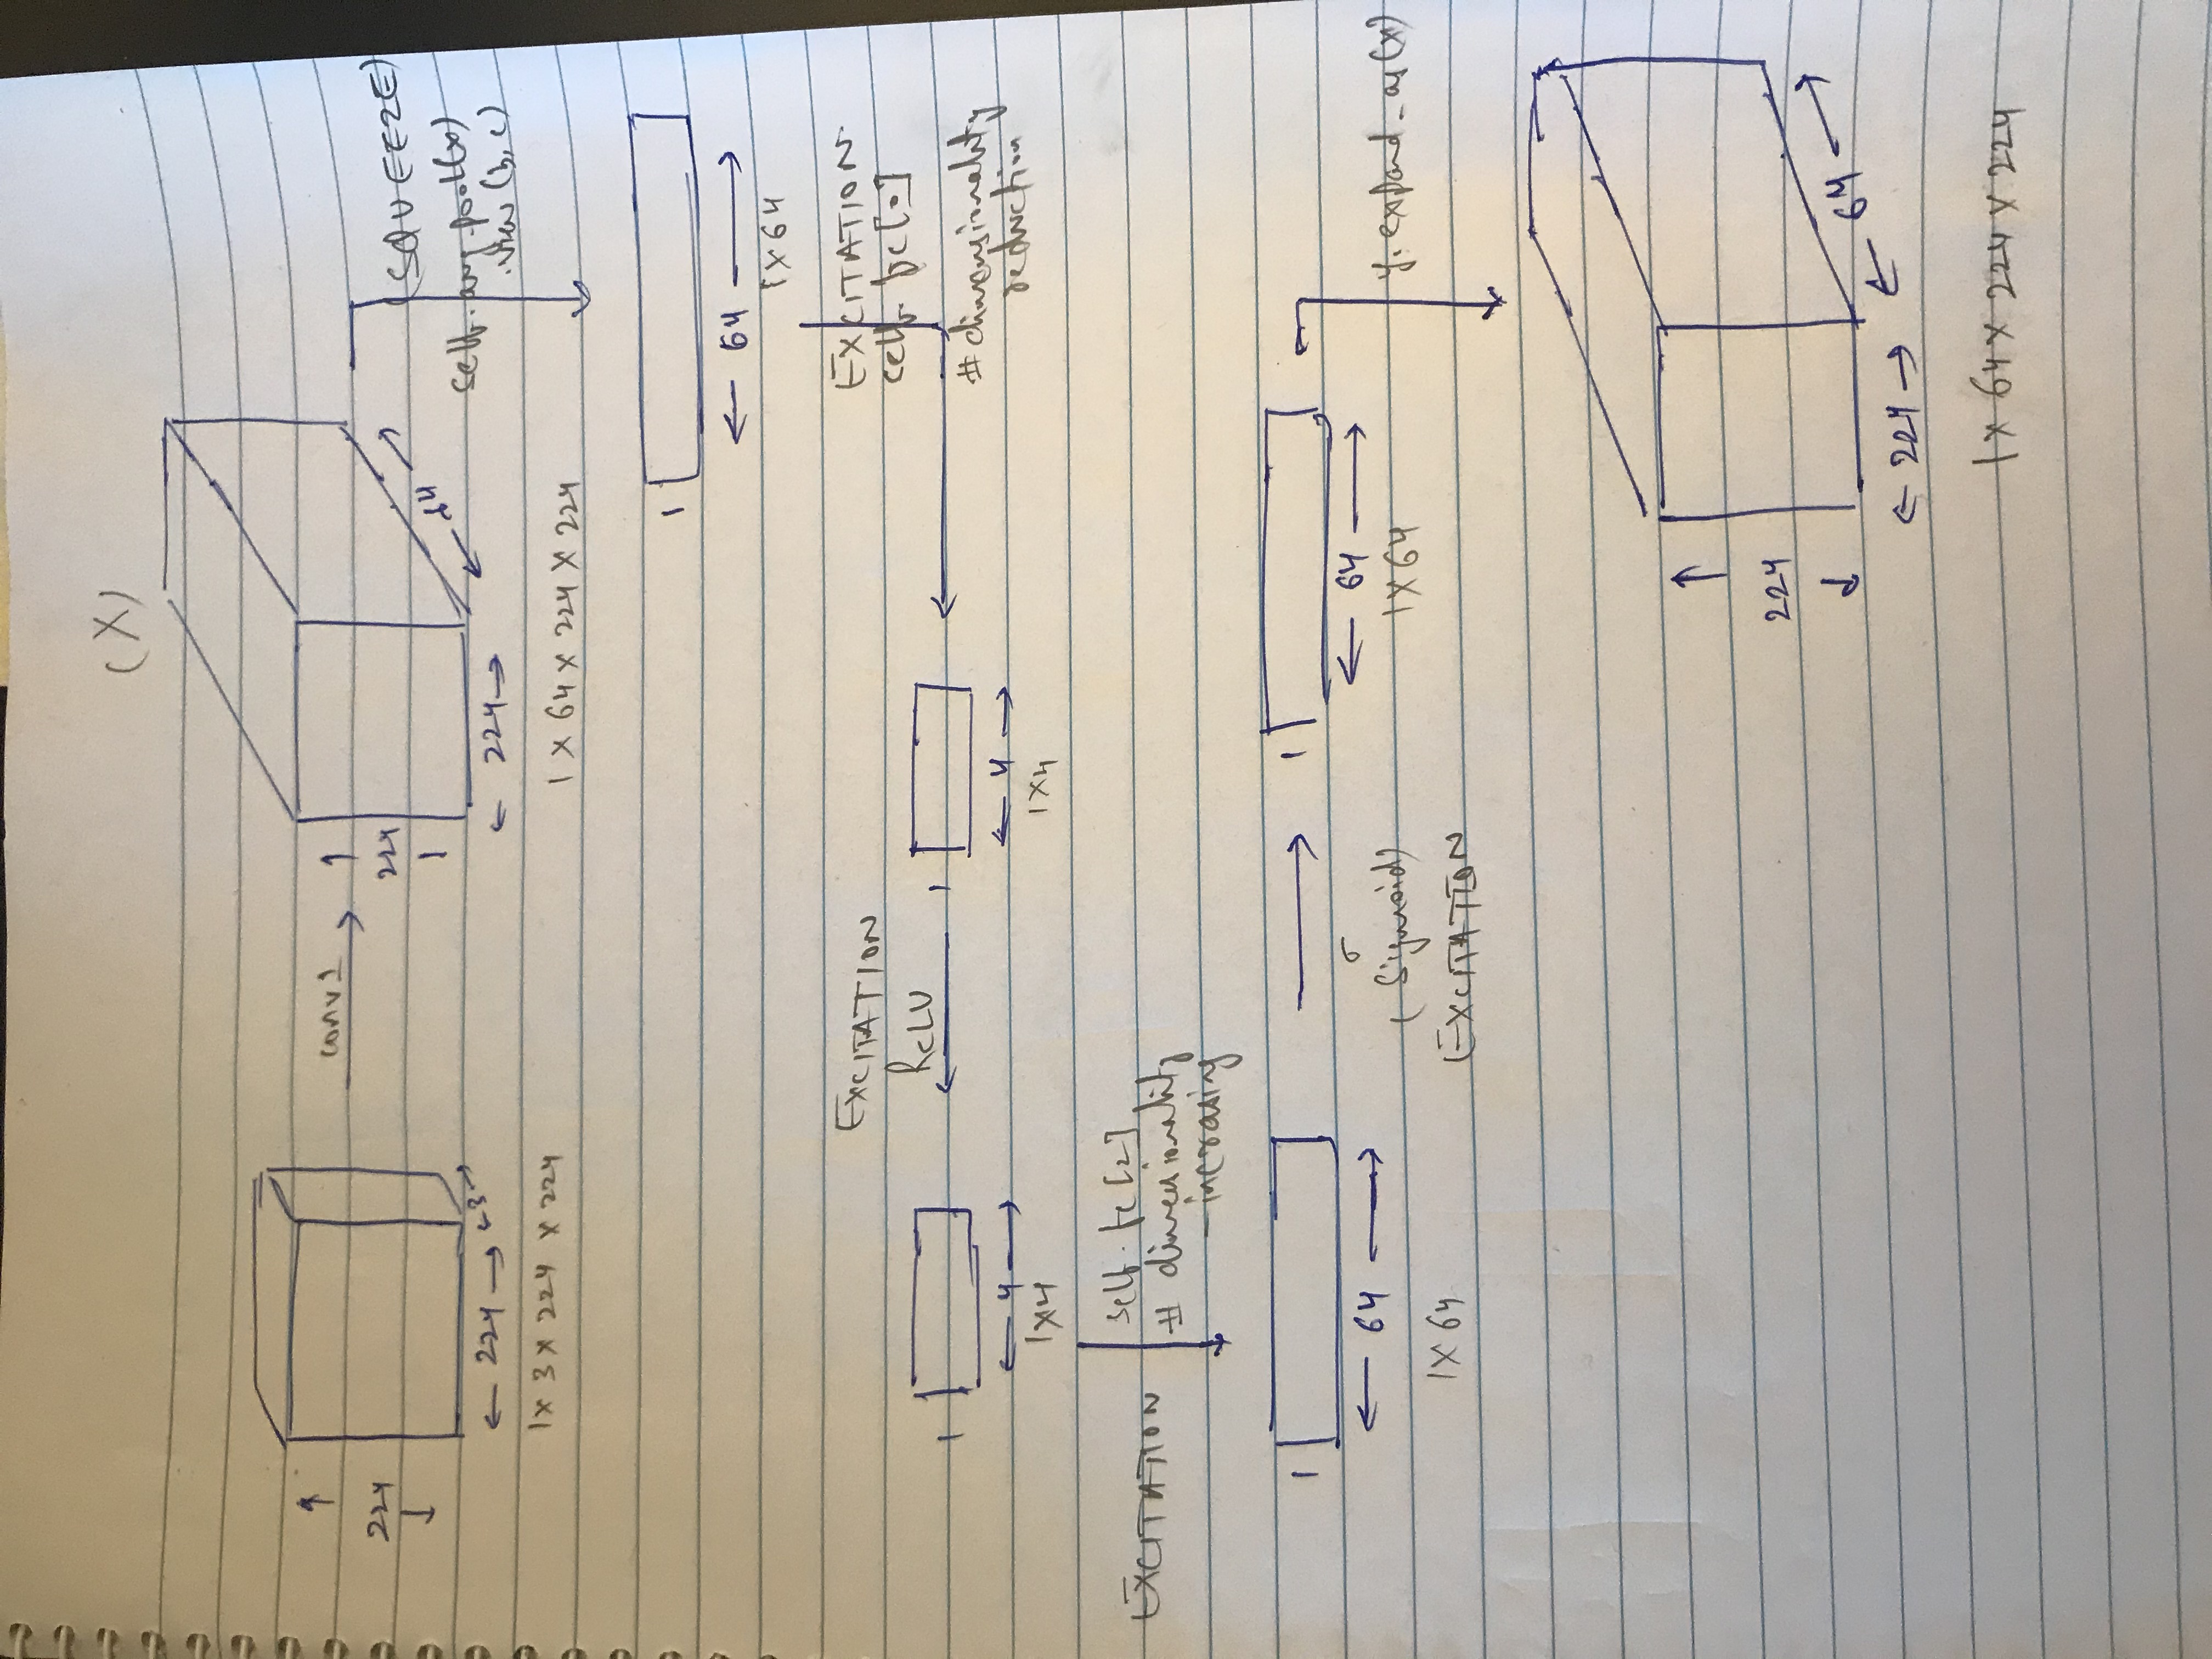 (X)
conv1
224
224
3
1 x 3 x 224 x 224
224
224
64
1 x 64 x 224 x 224
(SQUEEZE)
self.avg-pool(x)
.view(b, c)
1
64
1x64
EXCITATION
self.fc[0]
# dimensionality
reduction
1
4
1x4
EXCITATION
ReLU
1
4
1x4
EXCITATION
self.fc[2]
# dimensionality
-incrasing
1
64
1x64
σ
(Sigmoid)
EXCITATION
1
64
1x64
y.expand_as(x)
224
224
64
1 x 64 x 224 x 224